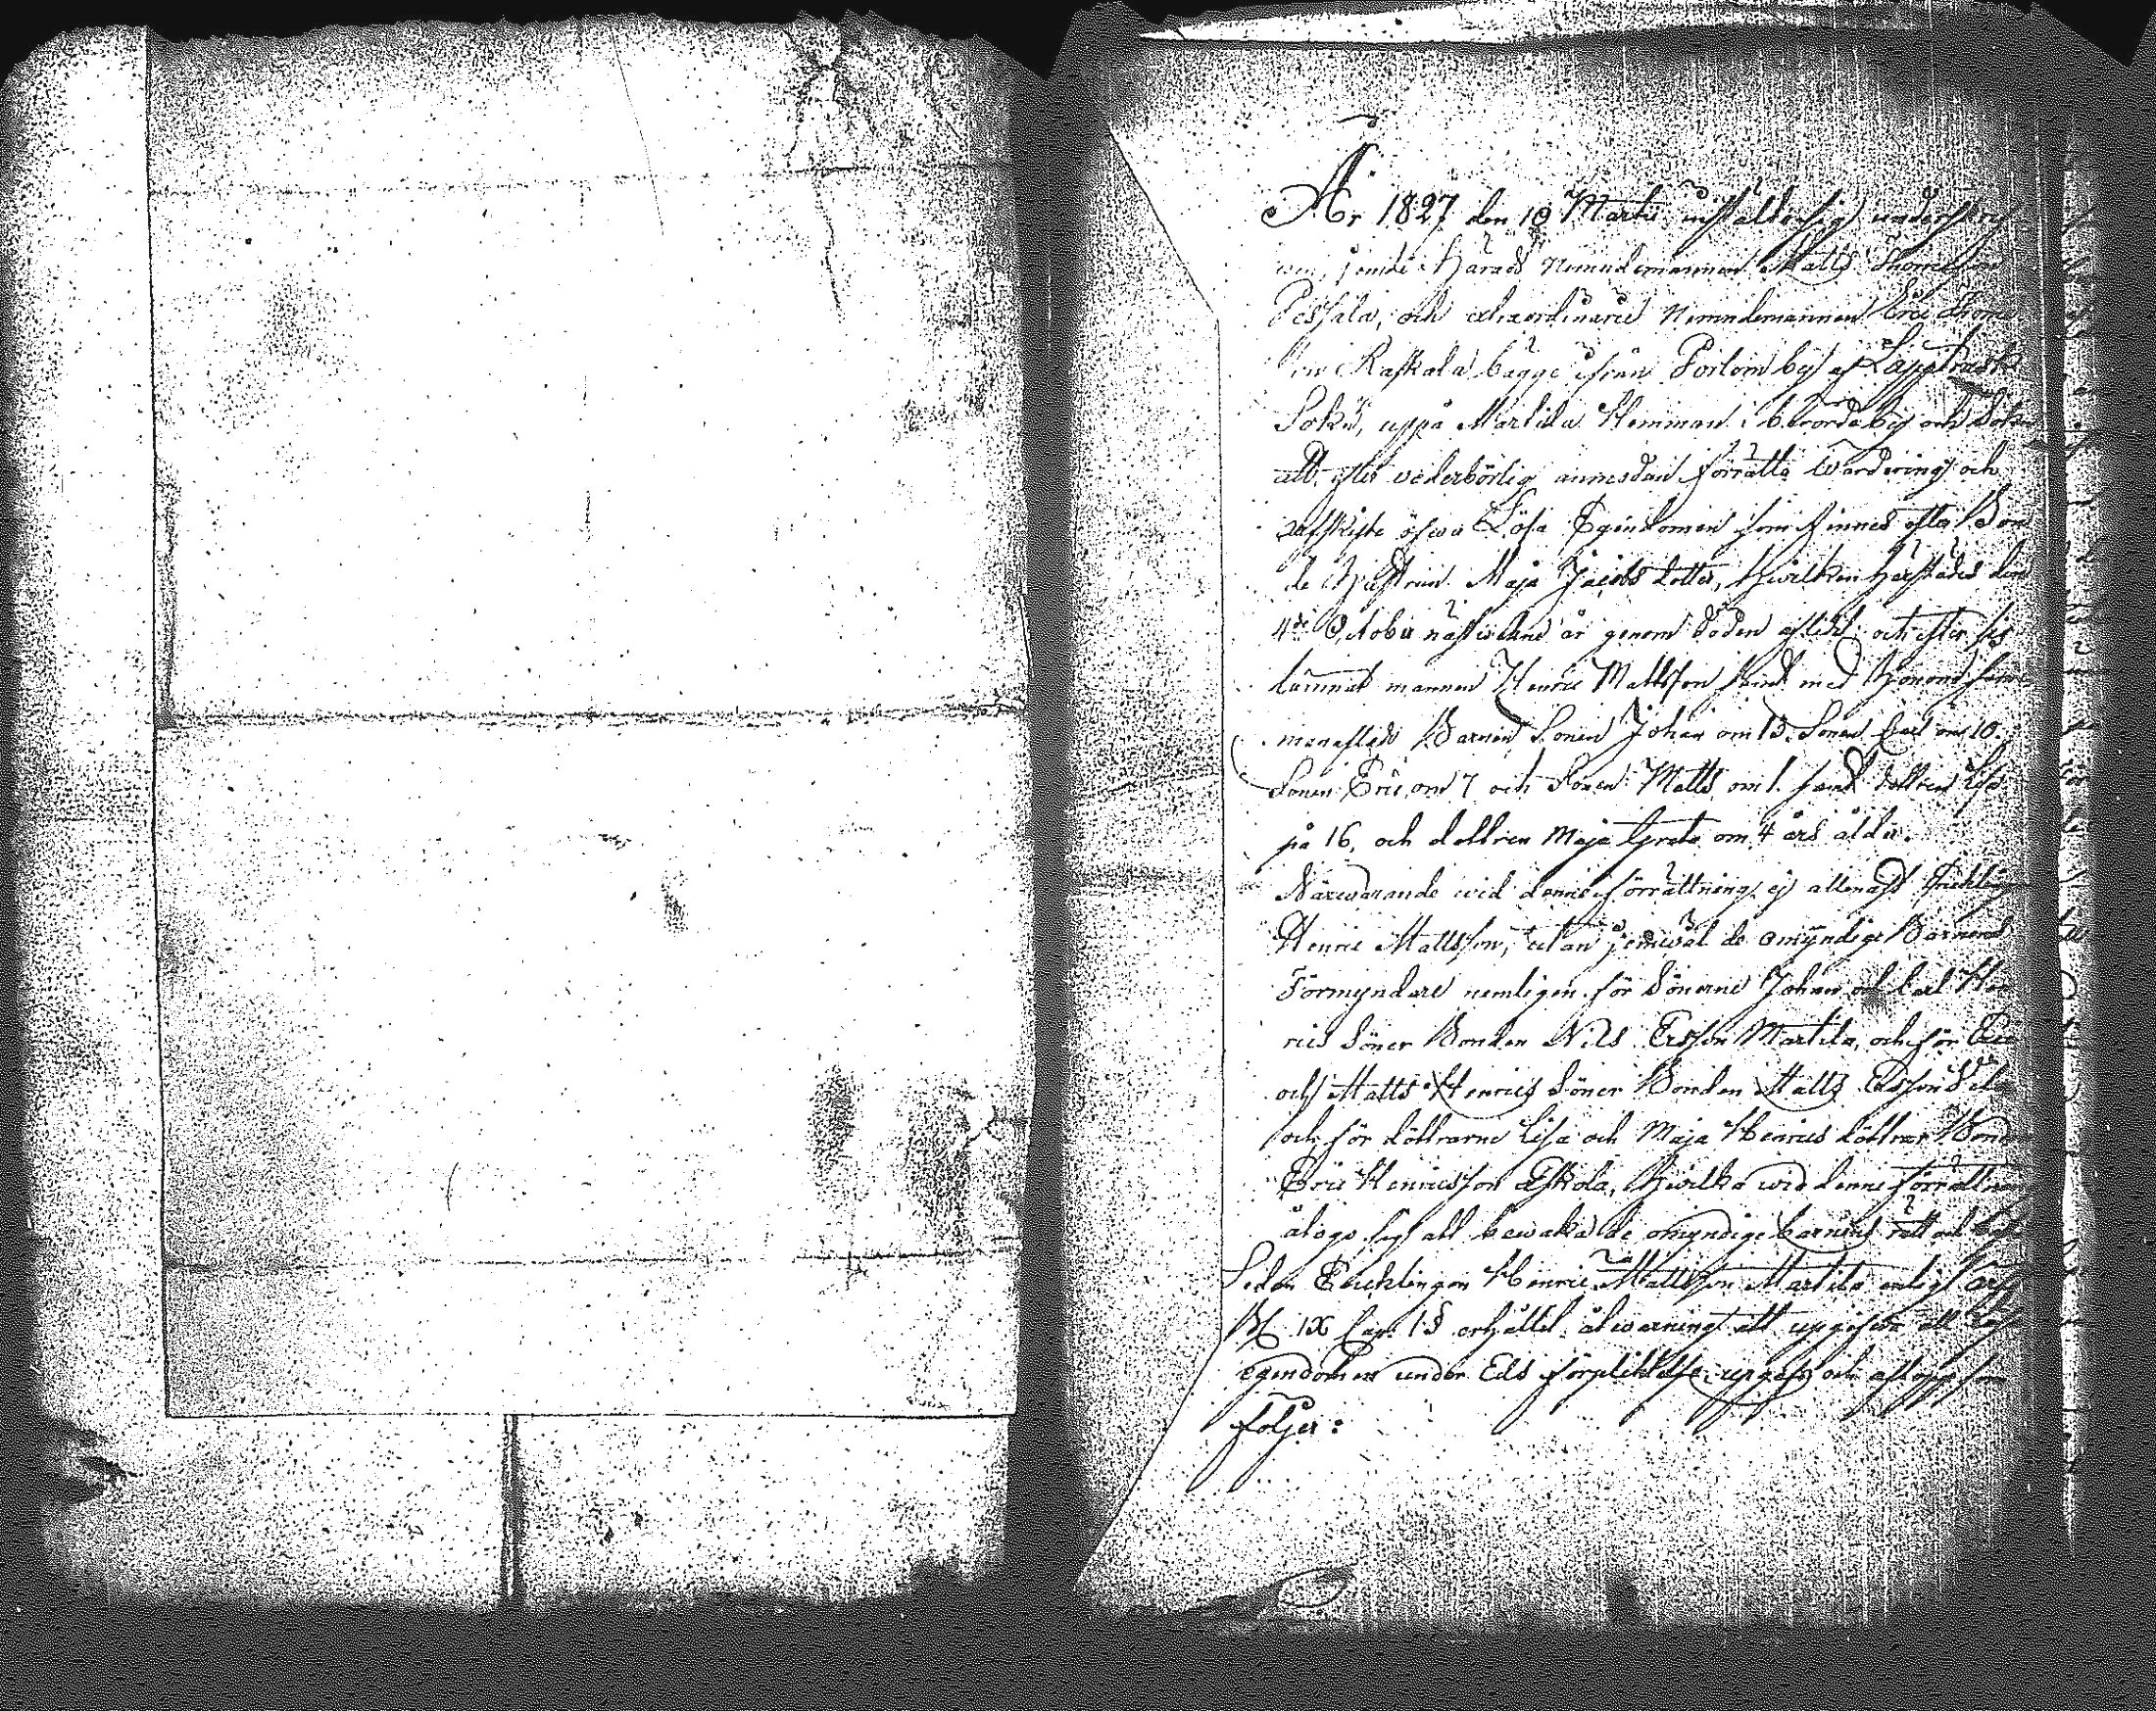 År 1827 den 10 Martii instälde sig underskref
wen, jemte Härads Nemndemannen Matts Thomasson
Pessala, och extraordinarie Nemndemannen Eric Thoms
son Raskala bägge ifrån Poilom by af Lappträsk
Sokn, uppå Martila Hemman i berörde by och Sokn
att efter vederbörlig anmodan förrätta Wärdering och
arfskifte öfwer Lösa Egendomen som finnes efter Bon
de Hustrun Maja Jacobs dotter, hwilken härstädes den
4de October nästledne år genom döden aflidit och efter sig
lämnat mannen Henric Mattsson samt med honom samm
manaflade Barnen Sonen Johan om 13. Sonen Carl om 10.
Sonen Eric om 7 och Sonen Matts om 1. samt dottren Lisa
på 16, och dottren Maja Greta om 4 års ålder.
Närwarande wid denne förrättning ej allenast Enklingen
Henric Mattsson, utan jemwäl de omyndige Barnens
Förmyndare nemligen för Sönerne Johan och Carl Hen
rics Söner Bonden Nils Ersson Martila, och för Eric
och Matts Henrics Söner Bonden Matts Ersson
och för döttrarne Lisa och Maja Henrics döttrar Bonden
Eric Henricsson Eskola, hwilka wid denne förrättning
ålogo sig att bewaka de omyndige barnens rätt och
Sedan Enklingen Henric Mattsson Martila enligt Arf
B: IX Cap. 1 § erhållit åtwarning att uppgifwa all
egendomen under Eds förpliktelse upgafs och aftogs som
följer: